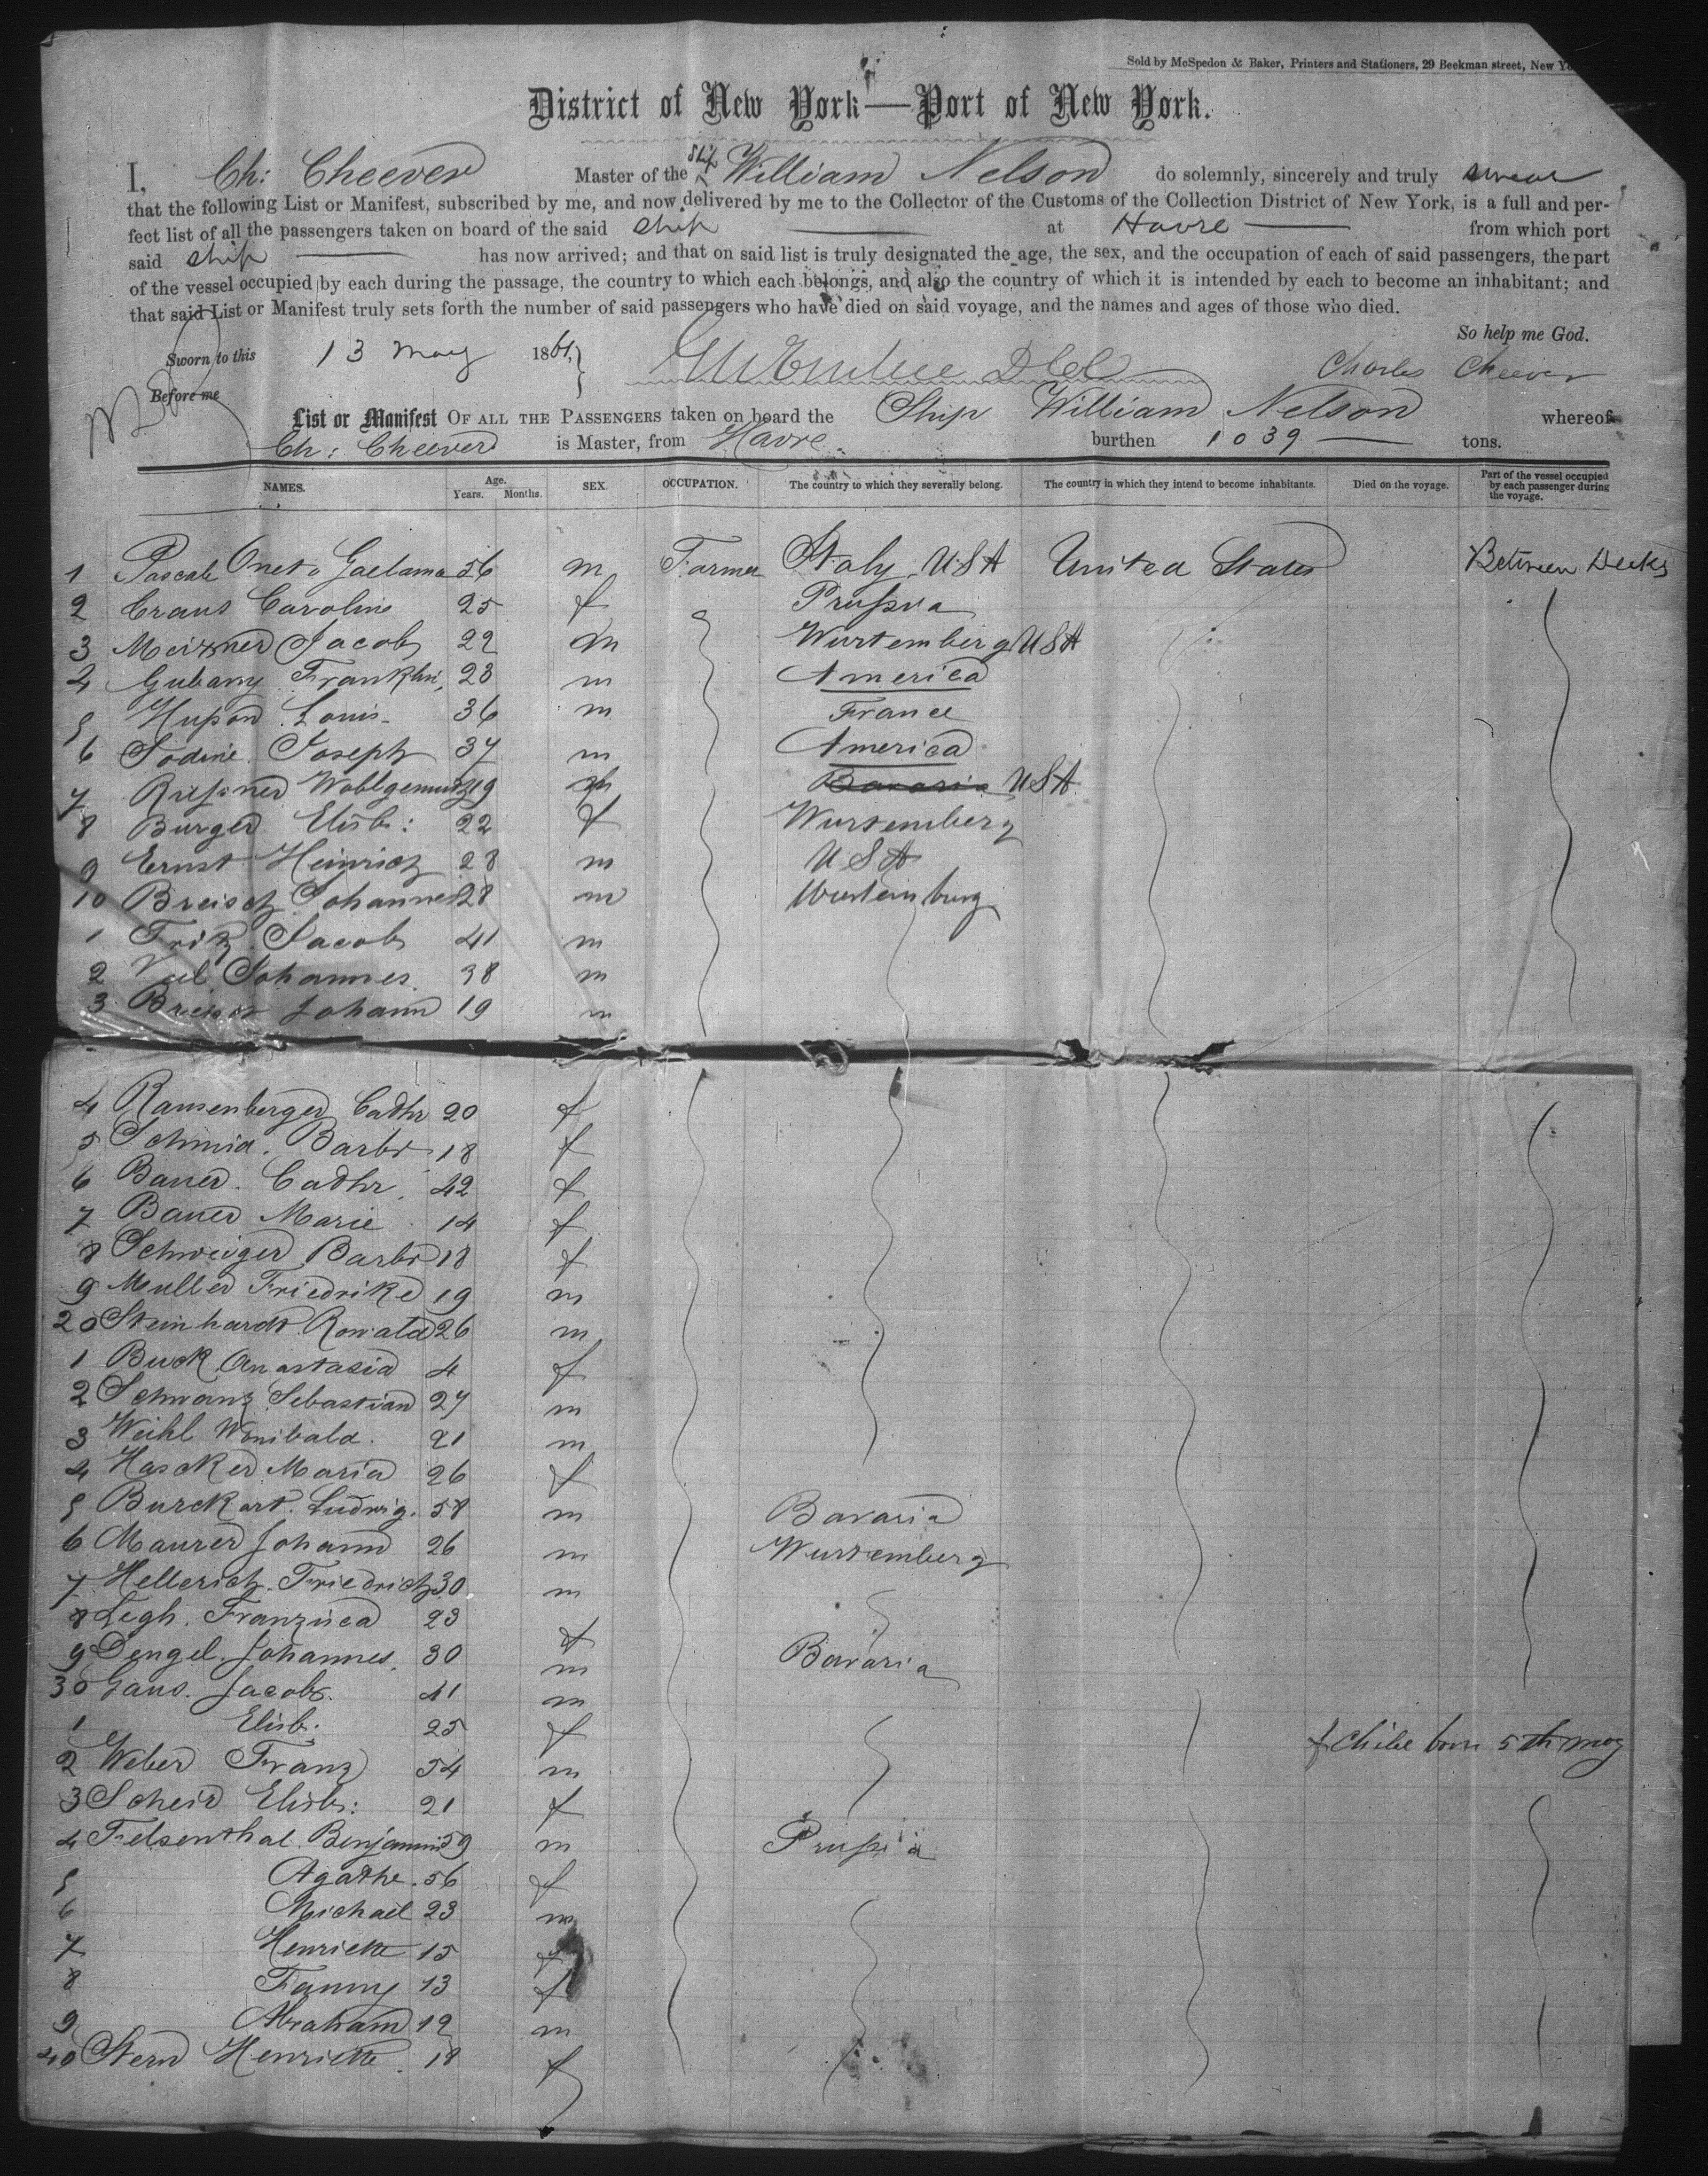 Sold by McSpedon & Baker, Printers and Stationers, 29 Beekman street, New
District of New York—Port of New York.
I, Ch: Cheever Master of the Ship William Nelson do solemnly, sincerely and truly swear
that the following List or Manifest, subscribed by me, and now delivered by me to the Collector of the Customs of the Collection District of New York, is a full and per-
fect list of all the passengers taken on board of the said Ship at Havre from which port
said Ship has now arrived; and that on said list is truly designated the age, the sex, and the occupation of each of said passengers, the part
of the vessel occupied by each during the passage, the country to which each belongs, and also the country of which it is intended by each to become an inhabitant; and
that said List or Manifest truly sets forth the number of said passengers who have died on said voyage, and the names and ages of those who died.
So help me God.
Sworn to this 13 May 1861, Charles Cheever
Before me
List or Manifest OF ALL THE PASSENGERS taken on board the Ship William Nelson whereof
Ch: Cheever is Master, from Havre. burthen 1039 tons.
NAMES. Age. Years. Months. SEX. OCCUPATION. The country to which they severally belong. The country in which they intend to become inhabitants. Died on the voyage. Part of the vessel occupied by each passenger during the voyage.
1 Pascale Oneto Gaetama 56 m Farmer Italy USA United States Between Decks
2 Craus Caroline 25 f Prussia
3 Meixner Jacob 22 m Wurtemberg USA
4 Gubany Franklin 23 m America
5 Hupond Louis 36 m France
6 Jodine Joseph 37 m America
7 Wohlgemuth 19 m Bavaria USA
8 Burger Elisb: 22 f Wurtemberg
9 Ernst Heinrich 28 m USA
10 Breisch Johannes 28 m Wurtemburg
1 Fritz Jacob 41 m
2 Veil Johannes. 38 m
3 Johann 19 m
4 Ramenberger Cathr 20 f
5 Schmid. Barbr 18 f
6 Bauer. Cathr. 42 f
7 Bauer Marie 14 f
8 Schweiger Barbr 18 f
9 Muller Friedrike 19 m
20 Steinhardt Rowald 26 m
1 Buck Anastasia 4 f
2 Schwanz Sebastian 27 m
3 Weihl Wonibald. 21 m
4 Hascker Maria 26 f
5 Burckart. Ludwig. 58 m Bavaria
6 Maurer Johann 26 m Wurtemberg
7 Hellerich. Friedrich 30 m
8 Legh. Franzisca 23 f
9 Dengel. Johannes. 30 m Bavaria
30 Gans. Jacob. 41 m
1 Elisb. 25 f f Child born 5th May
2 Weber Franz 54 m
3 Scheid Elisb: 21 f
4 Felsenthal Benjamin 59 m Prussia
5 Agathe. 56 f
6 Michael 23 m
7 Henriette 15 f
8 Fanny 13 f
9 Abraham 12 m
40 Stern Henriette. 18 f